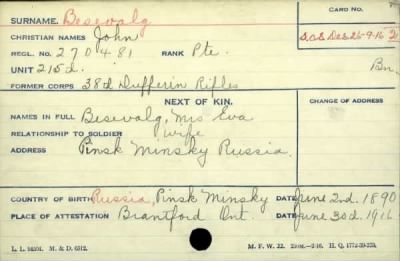 SURNAME. Besewalg
CARD NO.
CHRISTIAN NAMES John
REGL. NO. 270481 RANK Pte.
S.O.S. Des 26-9-16
UNIT 215d. Bn.
FORMER CORPS 38th Dufferin Rifles
NEXT OF KIN.
CHANGE OF ADDRESS
NAMES IN FULL Besewalg, Mrs Eva
RELATIONSHIP TO SOLDIER wife
ADDRESS Pinsk Minsky Russia.
COUNTRY OF BIRTH Russia, Pinsk Minsky DATE June 2nd. 1890
PLACE OF ATTESTATION Brantford Ont. DATE June 3rd. 1916
L. L. M. & D. 6512. M. F. W. 22. H. Q. 1772-39-339.